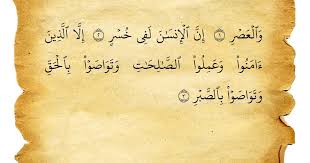 وَٱلْعَصْرِ ۝١ إِنَّ ٱلْإِنسَٰنَ لَفِى خُسْرٍ ۝٢ إِلَّا ٱلَّذِينَ
ءَامَنُوا۟ وَعَمِلُوا۟ ٱلصَّٰلِحَٰتِ وَتَوَاصَوْا۟ بِٱلْحَقِّ
وَتَوَاصَوْا۟ بِٱلصَّبْرِ ۝٣